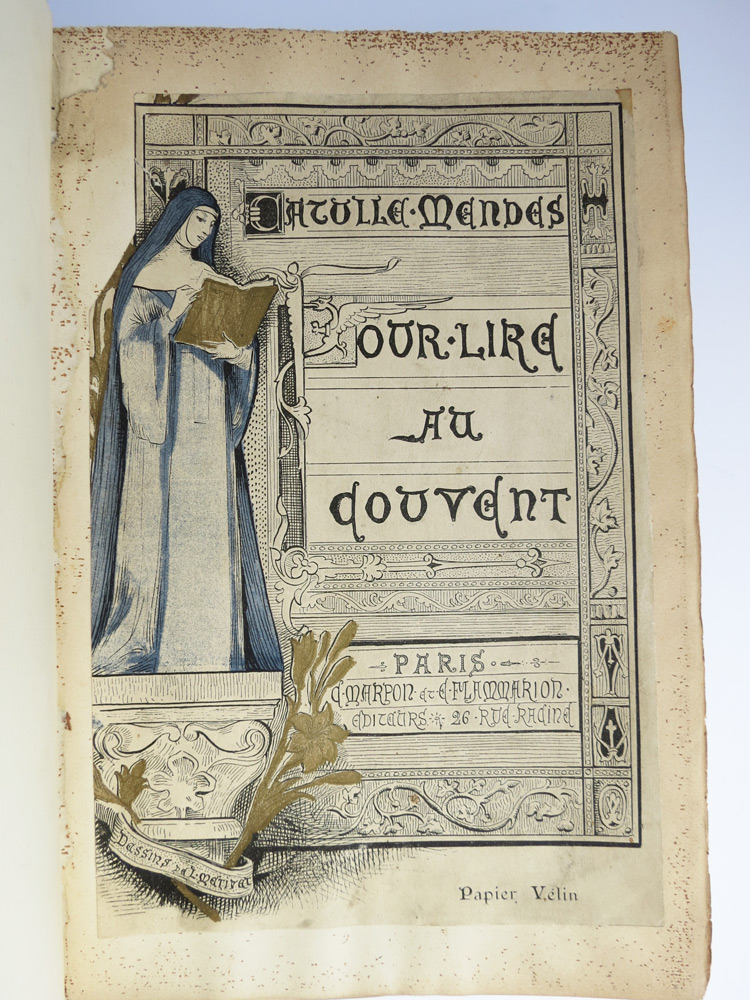 CATULLE·MENDES
POUR·LIRE
AU
COUVENT
PARIS
C·MARPON·ET·E·FLAMMARION·
EDITEURS 26·RUE·RACINE
DESSINS DE L·METIVET
Papier Vélin